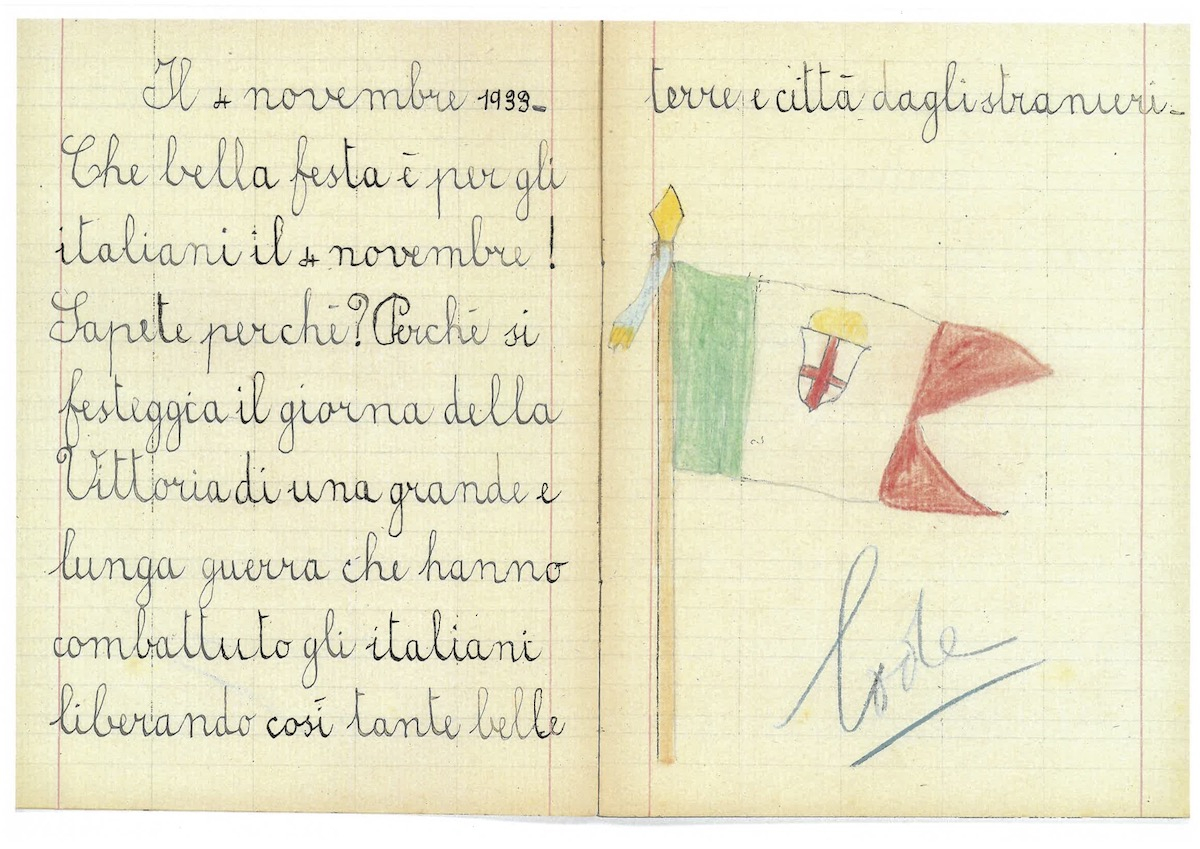 Il 4 novembre 1933-
Che bella festa è per gli
italiani il 4 novembre!
Sapete perché? Perché si
festeggia il giorna della
Vittoria di una grande e
lunga guerra che hanno
combattuto gli italiani
liberando così tante belle
terre e città dagli stranieri-
lode